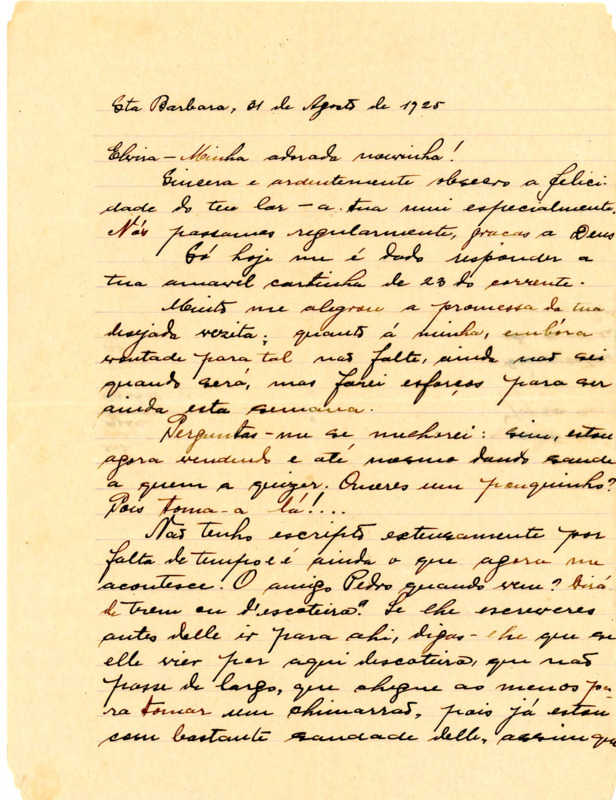 Sta Barbara, 31 de Agosto de 1925
Elvira - Minha adorada noivinha!
Sincera e ardentemente obsecro a felici-
dade do teu lar - a tua mui especialmente.
Nós passamos regularmente, graças a Deus
Só hoje me é dado responder a
tua amavel cartinha de 23 do corrente.
Muito me alegrou a promessa da tua
desejada vezita; quanto á minha, embóra
vontade para tal não falte, ainda não sei
quando será, mas farei esforços para ser
ainda esta semana.
Perguntas-me se melhorei: sim, estou
agora vendendo e até mesmo dando saude
a quem a quizer. Queres um pouquinho?
Pois toma-a lá!...
Não tenho escripto extensamente por
falta de tempo e é ainda o que agora me
acontece. O amigo Pedro quando vem? Virá
de trem ou d'escoteiro? Se lhe escreveres
antes delle ir para ahi, digas-lhe que se
elle vier por aqui descoteiro, que não
passe de largo, que chegue ao menos pa-
ra tomar um chimarrão, pois já estou
com bastante saudade delle, assim que